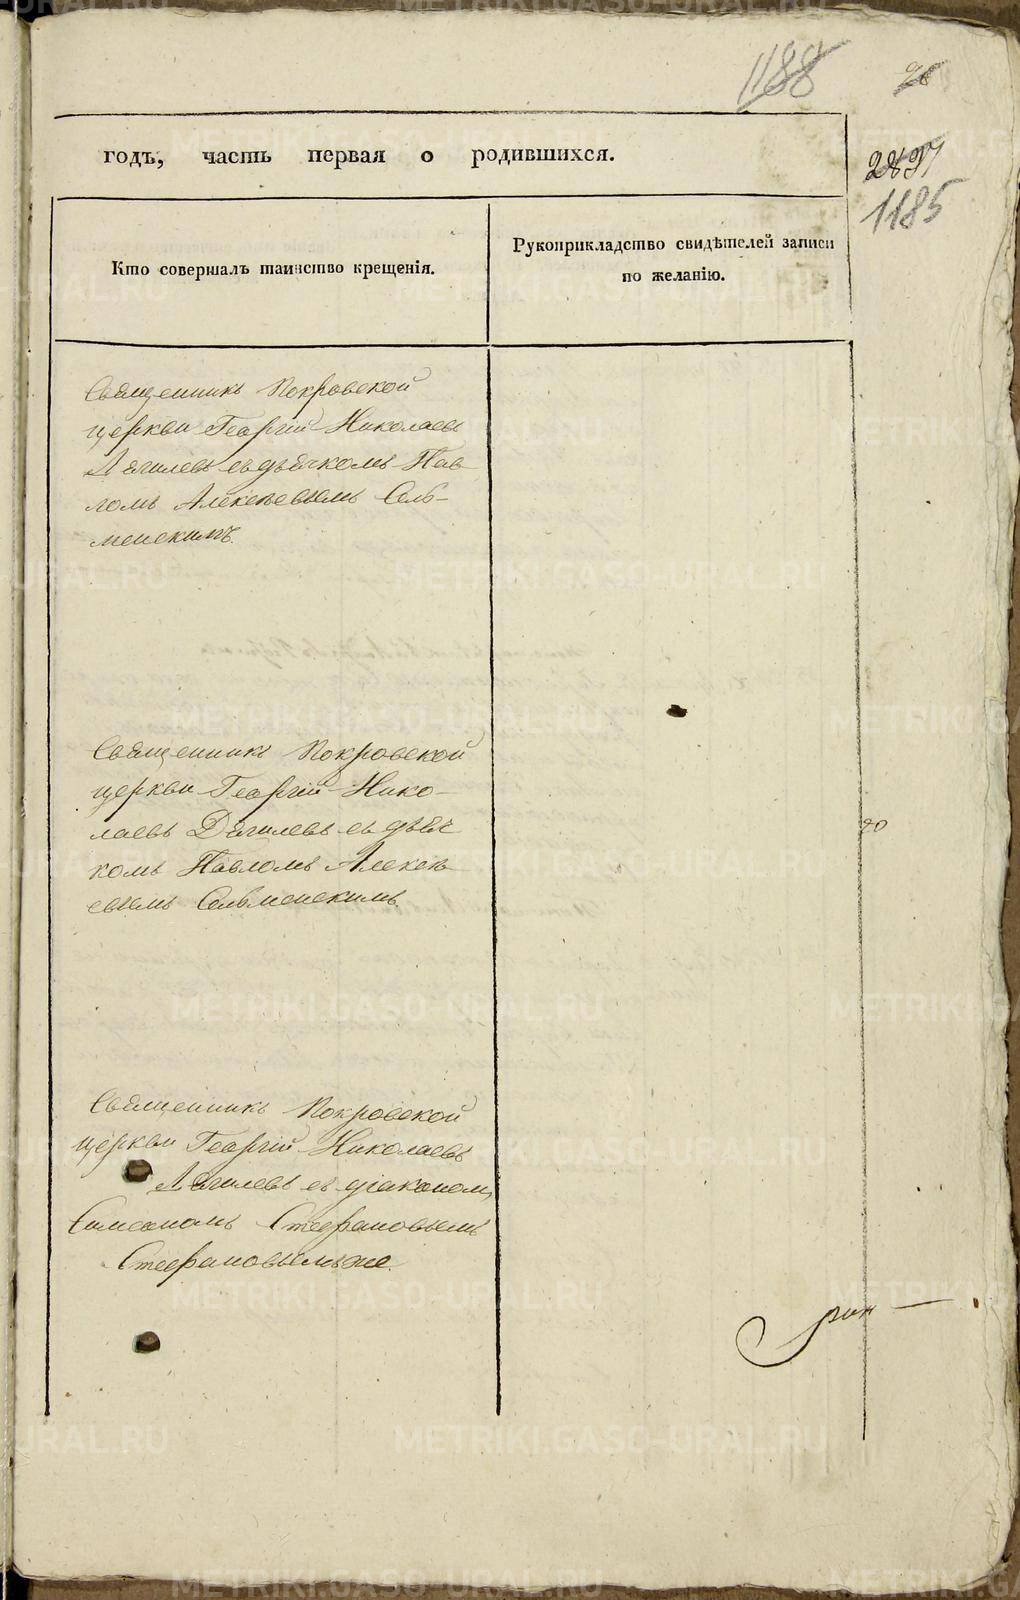 1188
26
годъ, часть первая о родившихся.
1185
Кто совершалъ таинство крещенія.
Рукоприкладство свидѣтелей записи
по желанію.
Священникъ Покровской
церкви Георгій Николаевъ
Дягилевъ съ дьячкомъ Пав
ломъ Алексѣевымъ Сель-
менскимъ.
Священникъ Покровской
церкви Георгій Нико-
лаевъ Дягилевъ съ дьяч
комъ Павломъ Алексѣ
евымъ Сельменскимъ.
20
Священникъ Покровской
церкви Георгій Николаевъ
Дягилевъ съ діакономъ
Симеономъ Стефановымъ
Стефановымъ же.
METRIKI.GASO-URAL.RU